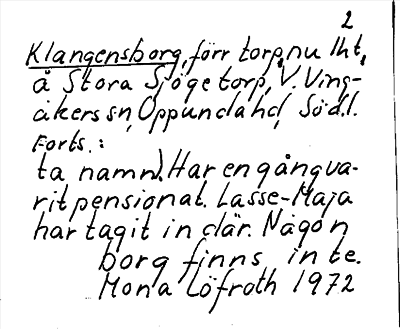 2
Klangensborg, förr torp, nu lht,
å Stora Sjögetorp, V. Ving-
åkers sn, Oppunda hd, Södl.
Forts.:
ta namn). Har en gång va-
rit pensionat. Lasse-Maja
har tagit in där. Någon
borg finns inte.
Mona Löfroth 1972